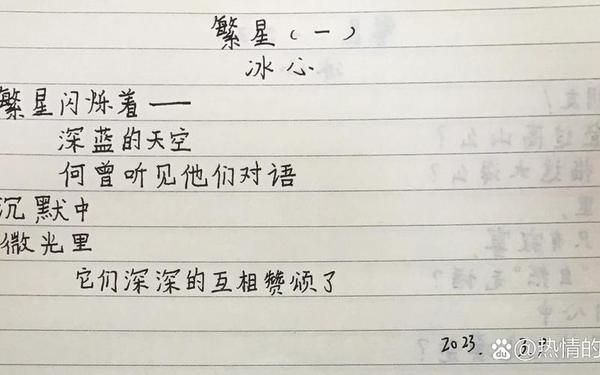 繁星（一）
冰心
繁星闪烁着——
深蓝的天空
何曾听见他们对语
沉默中
微光里
它们深深的互相赞颂了
2023.
@热情的